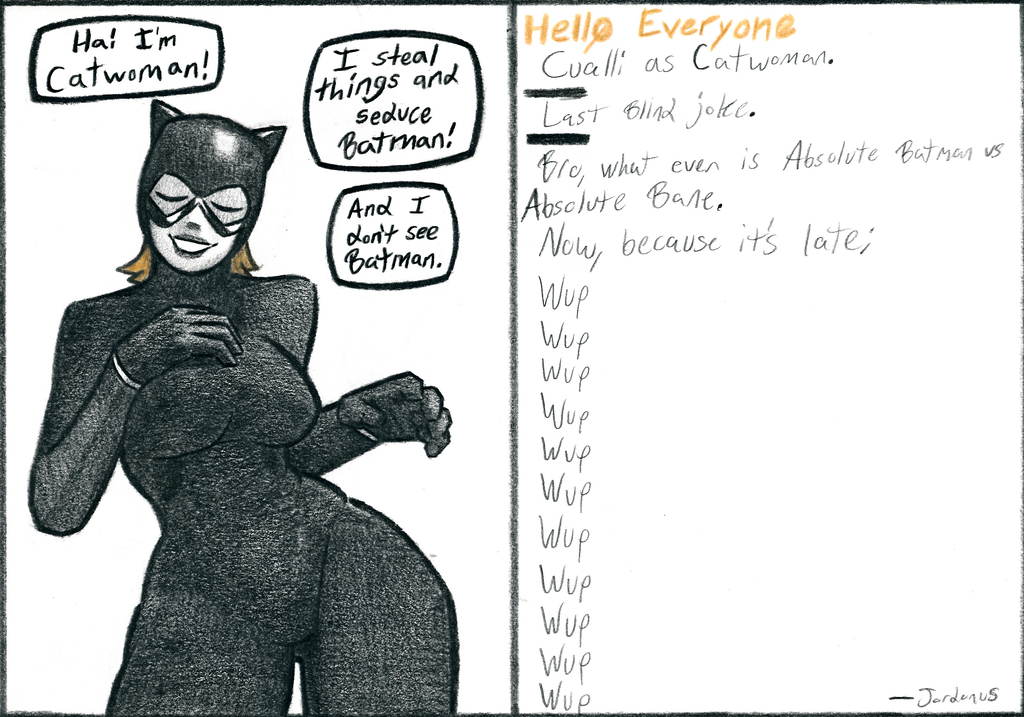 Ha! I'm
Catwoman!
I steal
things and
seduce
Batman!
And I
don't see
Batman.
Hello Everyone
Cualli as Catwoman.
Last Blind joke.
Bro, what even is Absolute Batman vs
Absolute Bane.
Now, because it's late;
Wup
Wup
Wup
Wup
Wup
Wup
Wup
Wup
Wup
Wup
Wup
— Jordanus